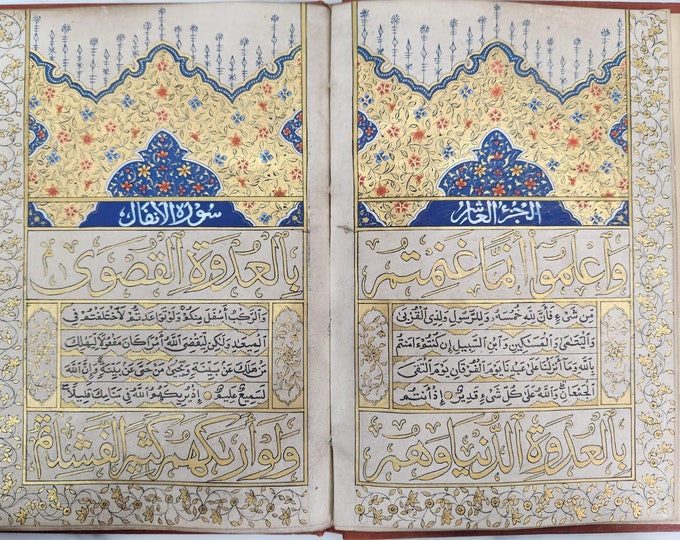 الجزء العاشر
واعلموا أنما غنمتم
من شيء فأن لله خمسه وللرسول ولذي القربى
واليتمى والمسكين وابن السبيل إن كنتم ءامنتم
بالله وما أنزلنا على عبدنا يوم الفرقان يوم التقى
الجمعان والله على كل شيء قدير إذ أنتم
بالعدوة الدنيا وهم
سورة الأنفال
بالعدوة القصوى
والركب أسفل منكم ولو تواعدتم لاختلفتم في
الميعد ولكن ليقضي الله أمرا كان مفعولا ليهلك
من هلك عن بينة ويحيى من حي عن بينة وإن الله
لسميع عليم إذ يريكهم الله في منامك قليلا
ولو أريكهم كثيرا لفشلتم